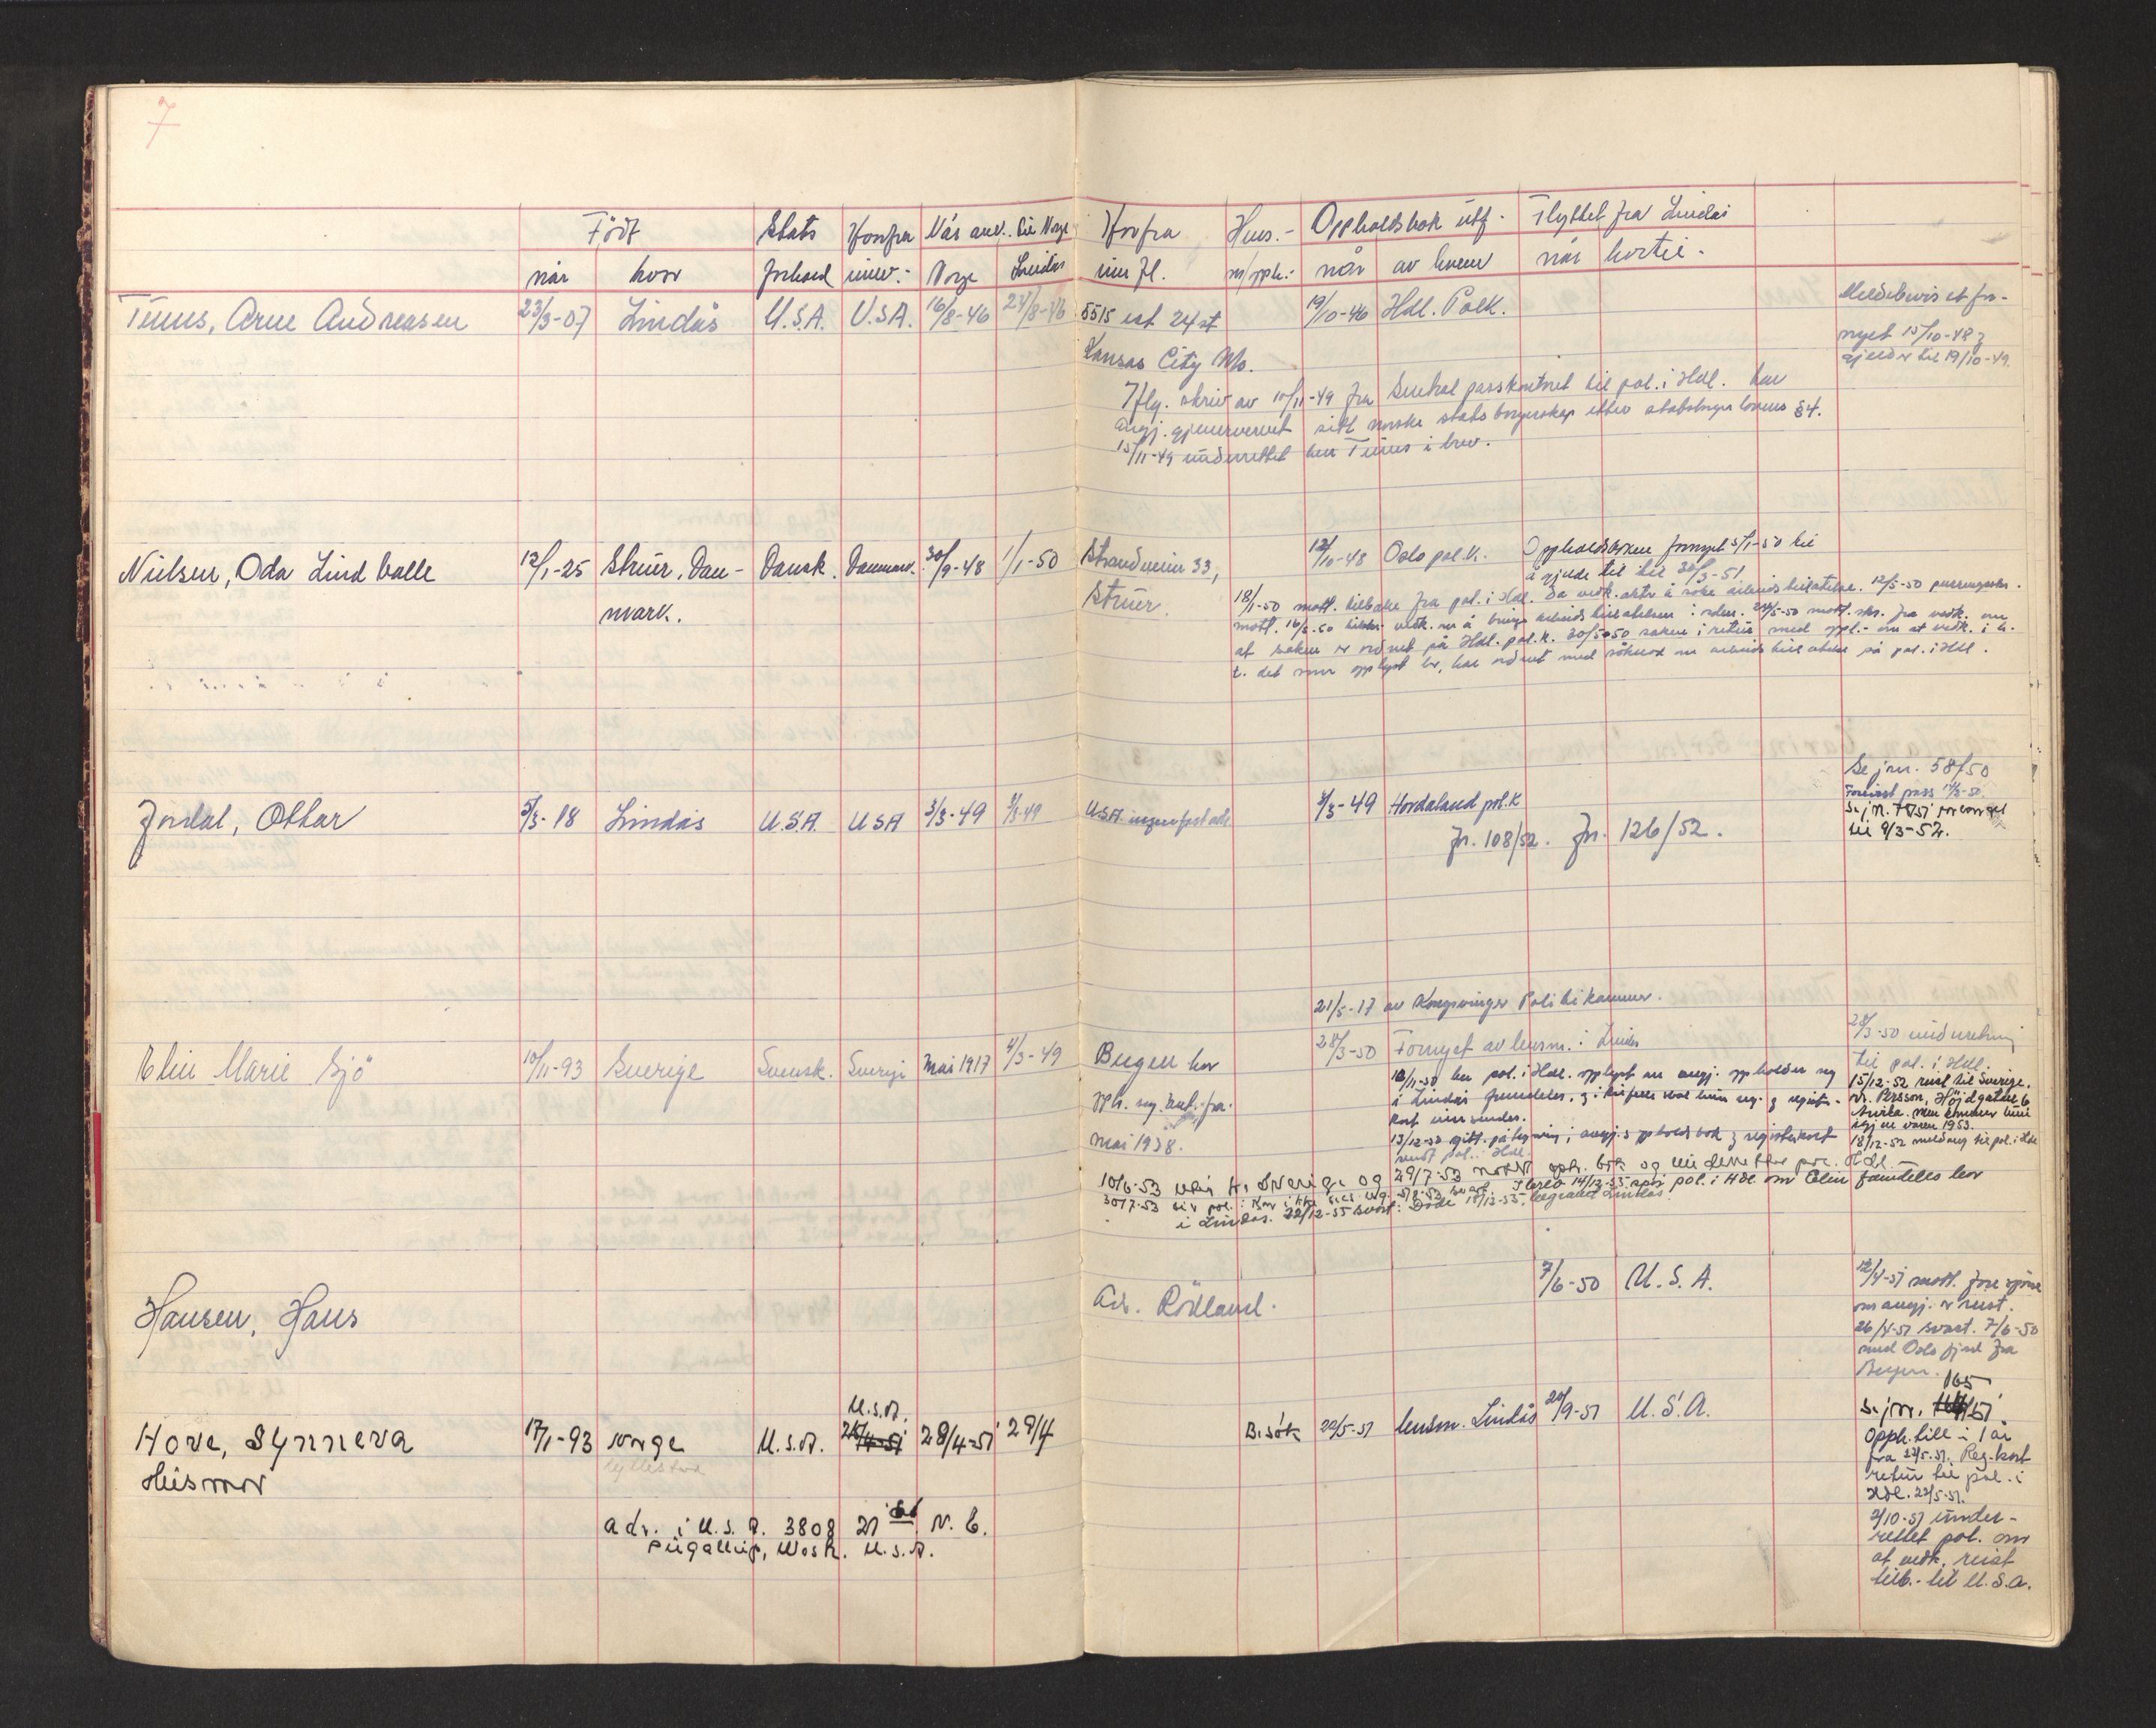 7
Född Stats Hvorfra Når ank. til Norge Hvorfra Hus.- Oppholdsbok utf. Flyttet fra Lindås
når hvor forhold innv.- Norge Lindås innfl. m/opph.- når av hvem når hvortil.
Arne Andreasen 23/3-07 Lindås U.S.A. U.S.A. 16/8-46 24/8-46 5515 est 24 st 19/10-46 Hdl. Polk. Meldebevis et for-
nyet 15/10-48 og
Kansas City Mo. gjelder til 19/10-49.
Iflg. skriv av 10/11-49 fra Sentral passkontoret til pol. i Hdl. har
angj. gjenervervet sitt norske statsborgerskap etter statsborgerlovens §4.
15/11-49 underrettet herr i brev.
Nielsen, Oda Lind balle 12/1-25 Struer, Dan- Dansk. Danmark. 30/9-48 1/1-50 Strandveien 33, 12/10-48 Oslo pol.k. Oppholdsboken fornyet 5/1-50 til
å gjelde til 30/3-51
mark. Struer. 18/1-50 mott. tilbake fra pol. i Hdl. Da vedk. akter å søke arbeidstillatelse. 12/5-50
mott. 16/5-50 vedk. om å bringe arbeidstillatelsen i orden. 24/5-50 mott. skr. fra vedk. om
at saken er ordnet på Hdl. pol.k. 30/5-50 saken i retur med oppl.- om at vedk. i h.
t. det som opplyst her, har ordnet med søknad om arbeidstillatelse på pol. i Hdl.
Se jnr. 58/50
pass
Jordal, Ottar 5/3-18 Lindås U.S.A. USA 3/3-49 3/3-49 U.S.A. ingen fast adr. 3/3-49 Hordaland pol.k
til 9/3-52.
Jn. 108/52. Jn. 126/52.
21/5-17 av Kongsvinger Politikammer.
Elin Marie Sjö 10/11-93 Sverige Svensk. Sverige Mai 1917 4/3-49 Bergen har 28/3-50 Fornyet av lensm. i Lindås 28/3-50 underretning
til pol. i Hdl.
opph. seg kont. fra 18/11-50 har pol. i Hdl. opplyst om angj. oppholder seg 15/12-52 reist til Sverige.
i Lindås fremdeles, og i tilfelle skal hun seg. og register- Persson, Höjdgatan 6
kort innsendes. Arvika. Men kommer
igjen våren 1953.
mai 1938. 13/12-50 gitt påtegning i angj.s oppholdsbok og registerkort 18/12-52 melding til pol. i Hdl.
sendt pol. i Hdl.
10/6-53 fra Sverige og 29/7-53 mottatt opph. bok og pol. Hdl.
30/7-53 14/12-55 spør pol. i Hdl. om Elin fremdeles bor
i Lindås. 22/12-55 svart: Döde 18/12-55, begravet Lindås.
Hansen, Hans Adr. Rödland. 7/6-50 U.S.A. 12/4-51 mott. fore spörs
om angj. er reist.
26/4-51 svart. 7/6-50
med Oslofjord fra
Bergen.
U.S.A. 165
Hove, Synneva 17/1-93 Norge U.S.A. 28/4-51 29/4 Besök 22/5-51 lensm. Lindås 20/9-51 U.S.A. Se jnr. /51.
Husmor Opph. till. i 1 år
fra 22/5-51. Reg.kort
retur til pol. i
Hdl. 22/5-51.
adr. i U.S.A. 3808 21 st N.E. 2/10-51 under-
Puyallup, Wash. U.S.A. rettet pol. om
at vedk. reist
tilb.- til U.S.A.